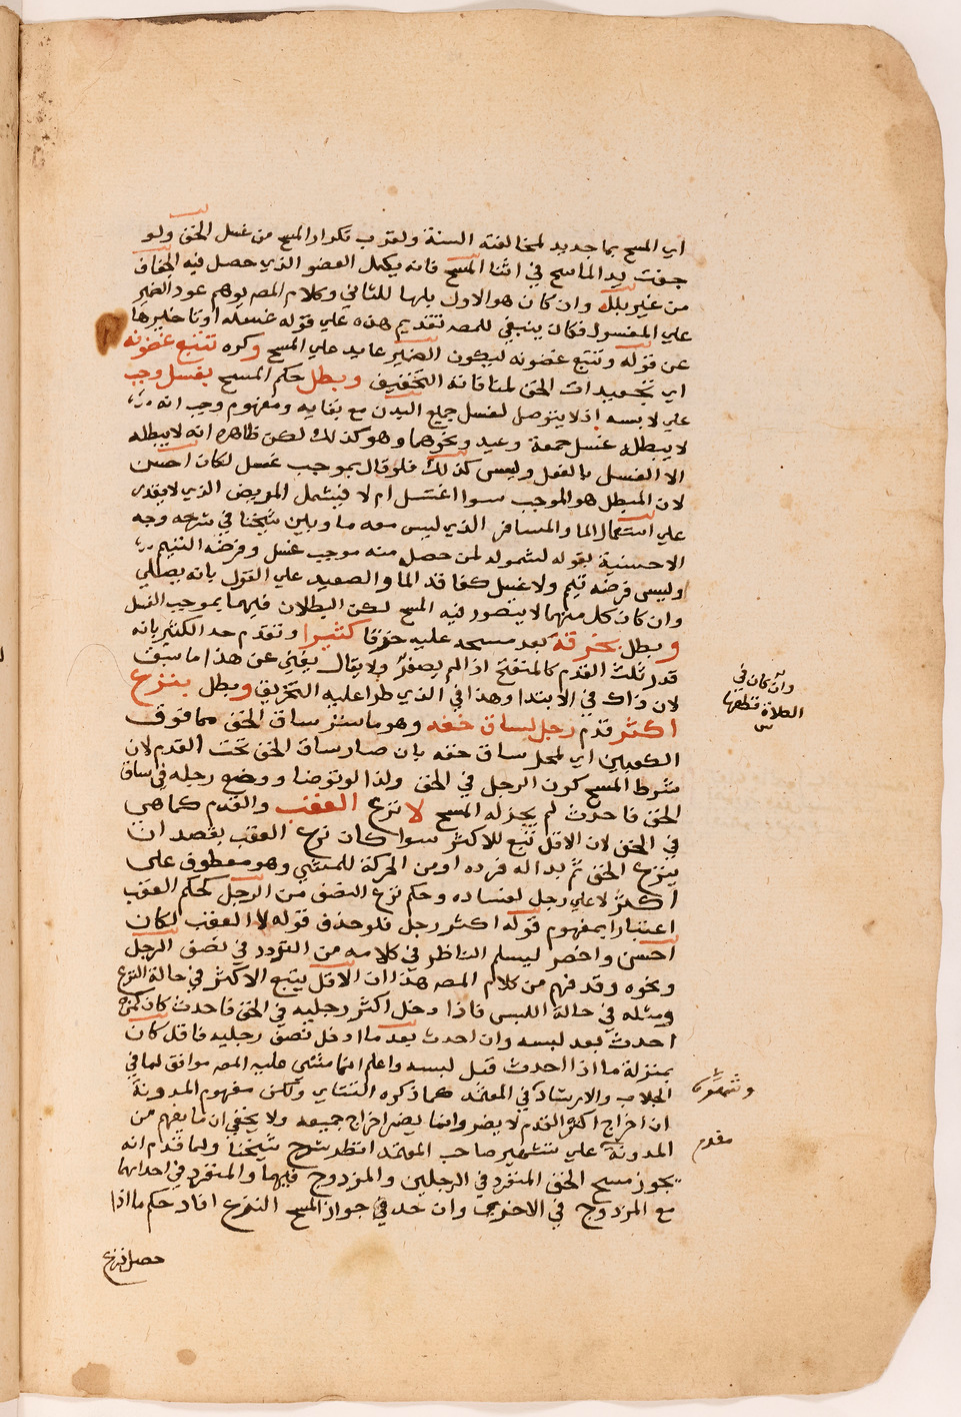 اي المسح بماجديد لمخالفته السنة ولقرب تكرار المسح من غسل الخف ولو
جفت يد الماسح في اثنا المسح فانه يكمل العضو الذي حصل فيه الجفاف
من غير بلل وان كان هو الاول بلها للثاني وكلام المصه يوهم عود الضمير
علي المغسول فكان ينبغي للمصه تقديم هذه علي قوله غسله او تاخيرها
عن قوله وتتبع غضونه ليكون الضمير عايد علي المسح وكره تتبع غضونه
اي تجعيدات الخف لمنافاته التخفيف وبطل حكم المسح بغسل وجب
علي لابسه اذ لا يتوصل لغسل جميع البدن مع بقايه ومفهوم وجب انه
لا يبطله غسل جمعة وعيد ونحوهما وهو كذلك لكن ظاهره انه لا يبطله
الا الغسل بالفعل وليس كذلك فلو قال بموجب غسل لكان احسن
لان المبطل هو الموجب سوا اغتسل ام لا فيشمل المريض الذي لا يقدر
علي استعمال الما والمسافر الذي ليس معه ما وبين شيخنا في شرحه وجه
الاحسنية بقوله لشموله لمن حصل منه موجب غسل وفرضه التيمم
وليس فرضه تيمم ولا غسل كفاقد الما والصعيد علي القول بانه يصلي
وان كان كل منهما لا يتصور فيه المسح لكن البطلان فيهما بموجب الغسل
وبطل بخرقه بعد مسحه عليه خرقا كثيرا وتقدم حد الكثير بانه
قدر ثلث القدم كالمنفتح اذا لم يصغر ولا يقال يغني عن هذا ما سبق
لان ذاك في الابتدا وهذا في الذي طرا عليه التخريق وبطل بنزع
اكثر قدم رجل لساق خفه وهو ما ستر ساق الخف مما فوق
الكعبين اي لمحل ساق خفه بان صار ساق الخف تحت القدم لان
شرط المسح كون الرجل في الخف ولذا لو توضا ووضع رجله في ساق
الخف فاحدث لم يجز له المسح لا نزع العقب والقدم كما هي
في الخف لان الاقل تبع للاكثر سوا كان نزع العقب بقصد ان
ينزع الخف ثم بدا له فرده او من الحركة للمشي وهو معطوف علي
اكثر لا علي رجل لفساده وحكم نزع النصف من الرجل كحكم العقب
اعتبارا بمفهوم قوله اكثر رجل فلو حذف قوله لا العقب لكان
احسن واخصر ليسلم الناظر في كلامه من التردد في نصف الرجل
ونحوه وقد فهم من كلام المصه هذا ان الاقل يتبع الاكثر في حالة النزع
ومثله في حالة اللبس فاذا دخل اكثر رجليه في الخف فاحدث كان كمن
احدث بعد لبسه وان احدث بعد ما ادخل نصف رجليه فاقل كان
بمنزلة ما اذا احدث قبل لبسه واعلم ان ما مشي عليه المصه موافق لما في
الجلاب والارشاد كفي المعتمد كما ذكره التتاي ولكن مفهوم المدونة
ان اخراج اكثر القدم لا يضر وانما يضر اخراج جميعه ولا يخفي ان ما يفهم من
المدونة علي تشهير صاحب المعتمد انظر شرح شيخنا ولما قدم انه
يجوز مسح الخف المنفرد في الرجلين والمزدوج فيهما والمنفرد في احداهما
مع المزدوج في الاخري وان في جواز المسح النزع افاد حكم ما اذا
حصل نزع
وان كان في
الصلاة قطعها
وشهره
مقدم